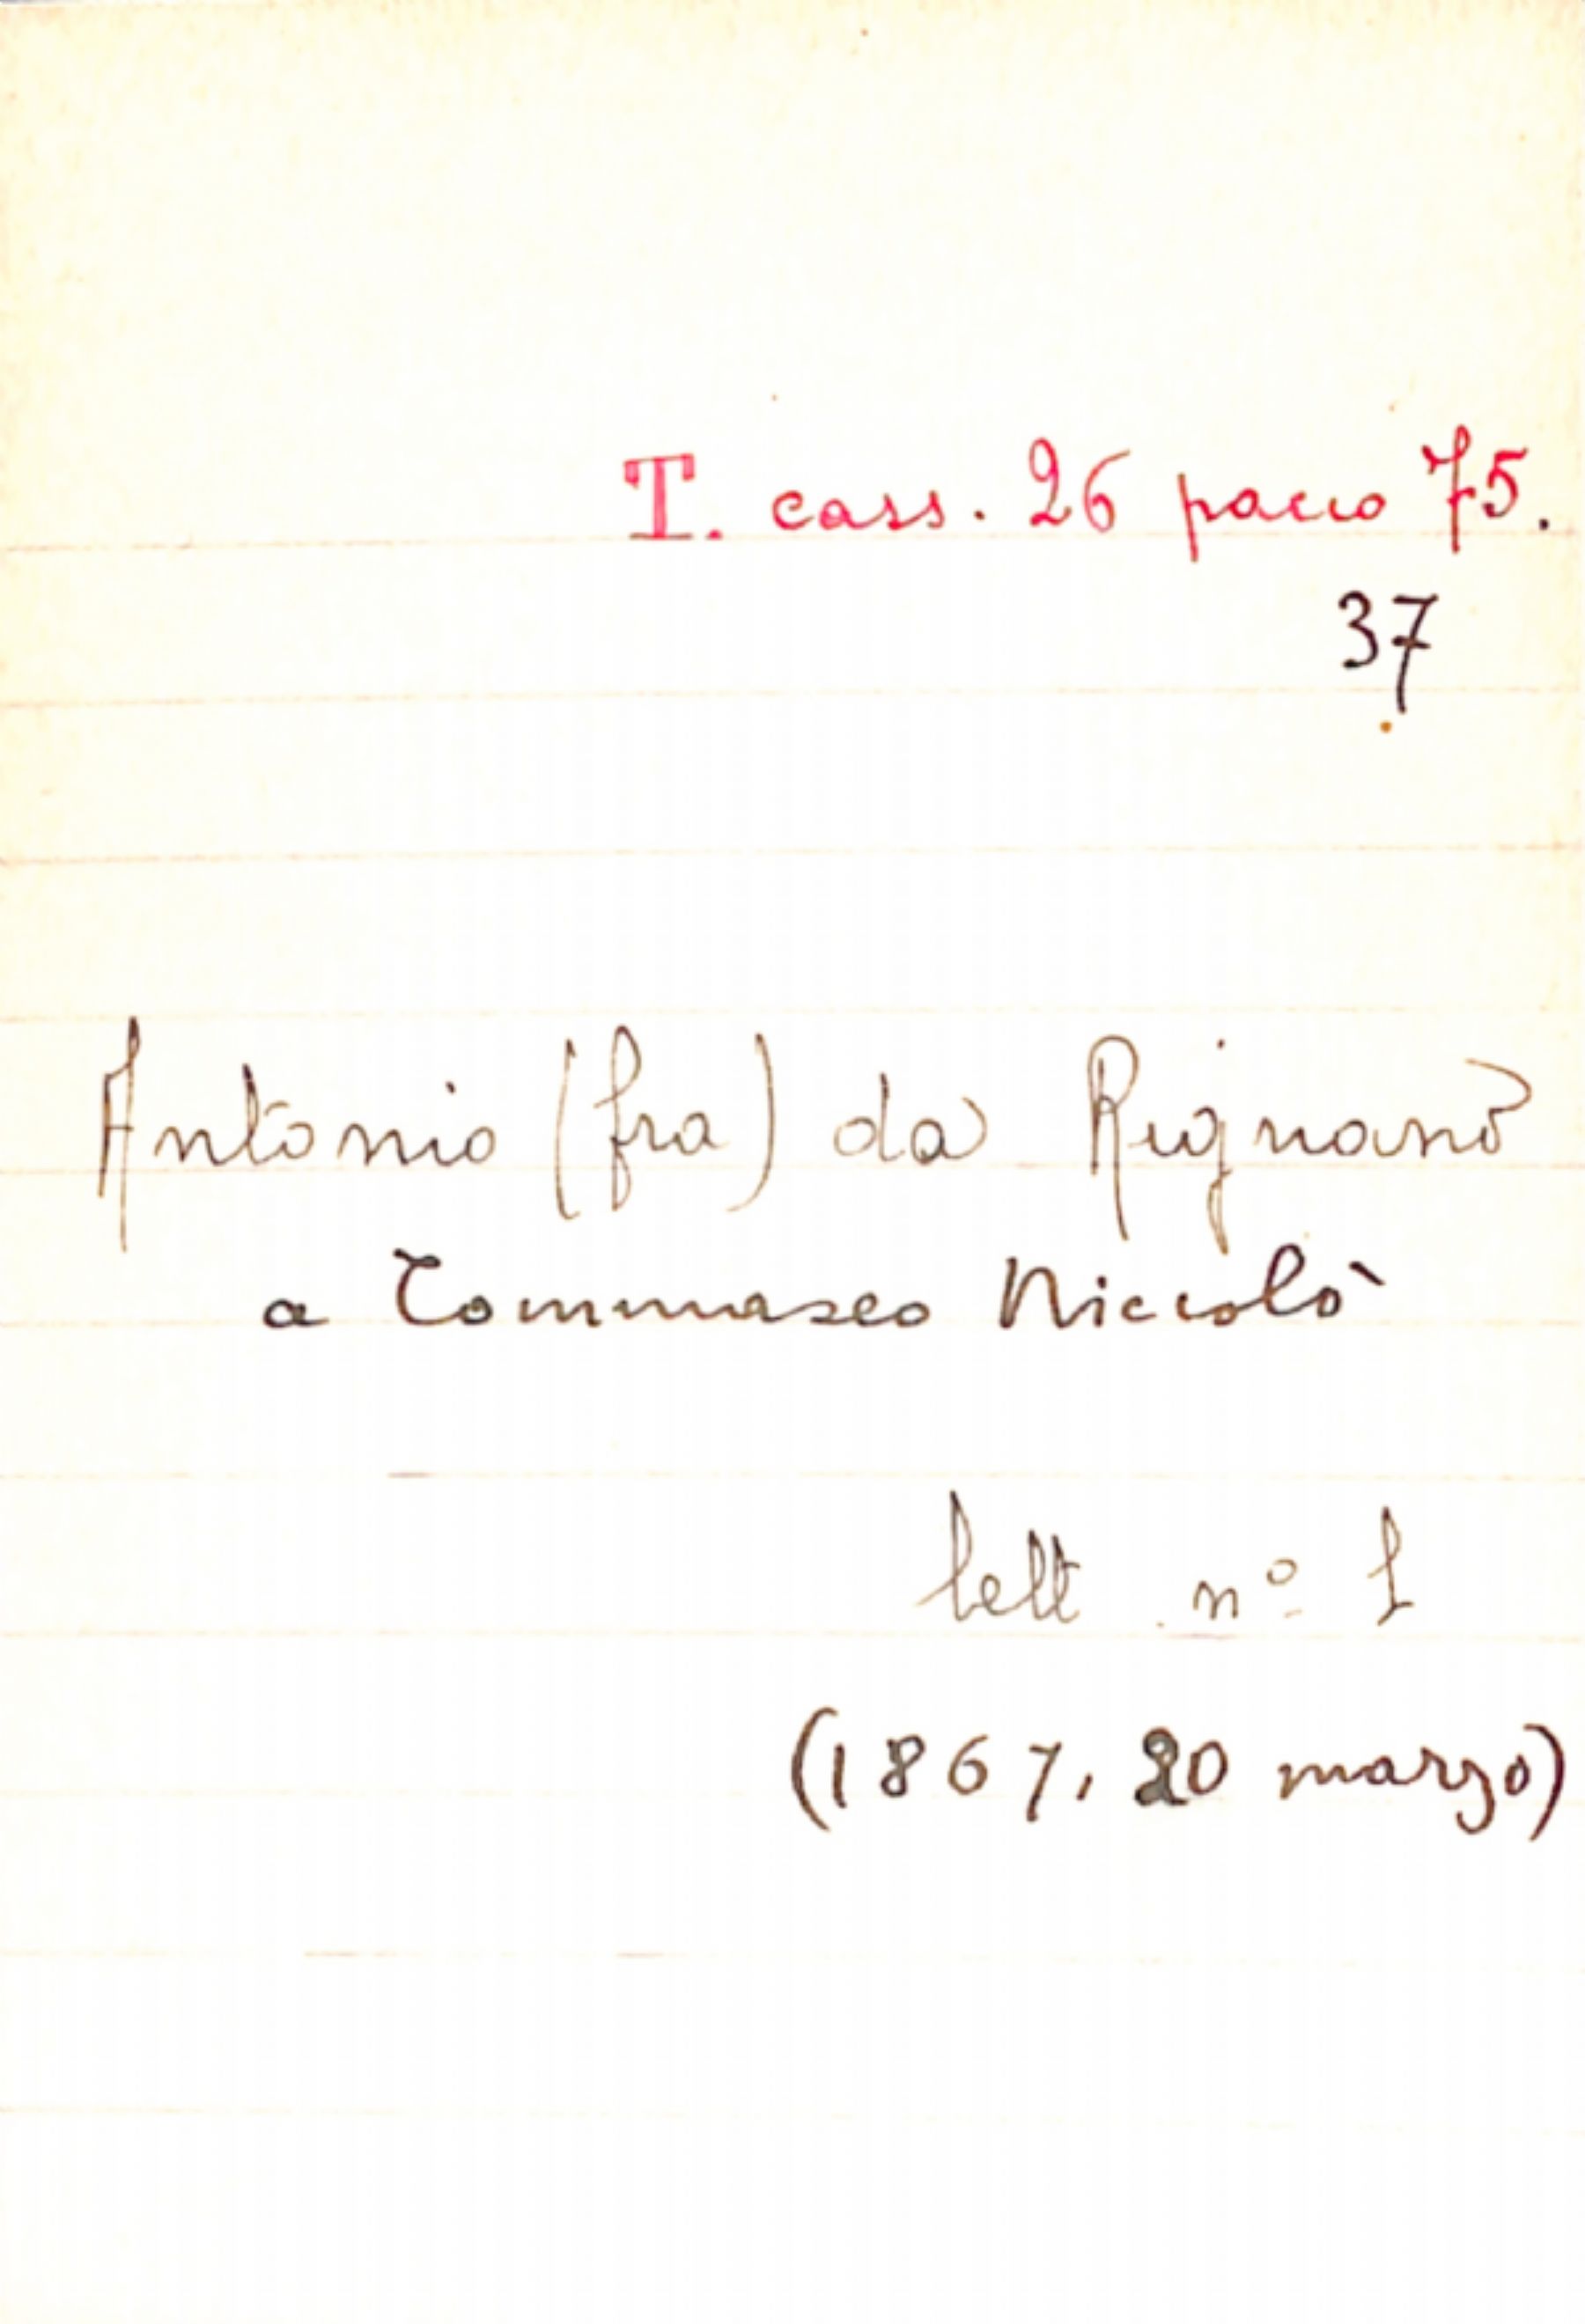 T. cass. 26 pacco 75.
37
Antonio (fra) da Rignano
a Tommaseo Niccolò
lett. nº 1
(1867, 20 marzo)